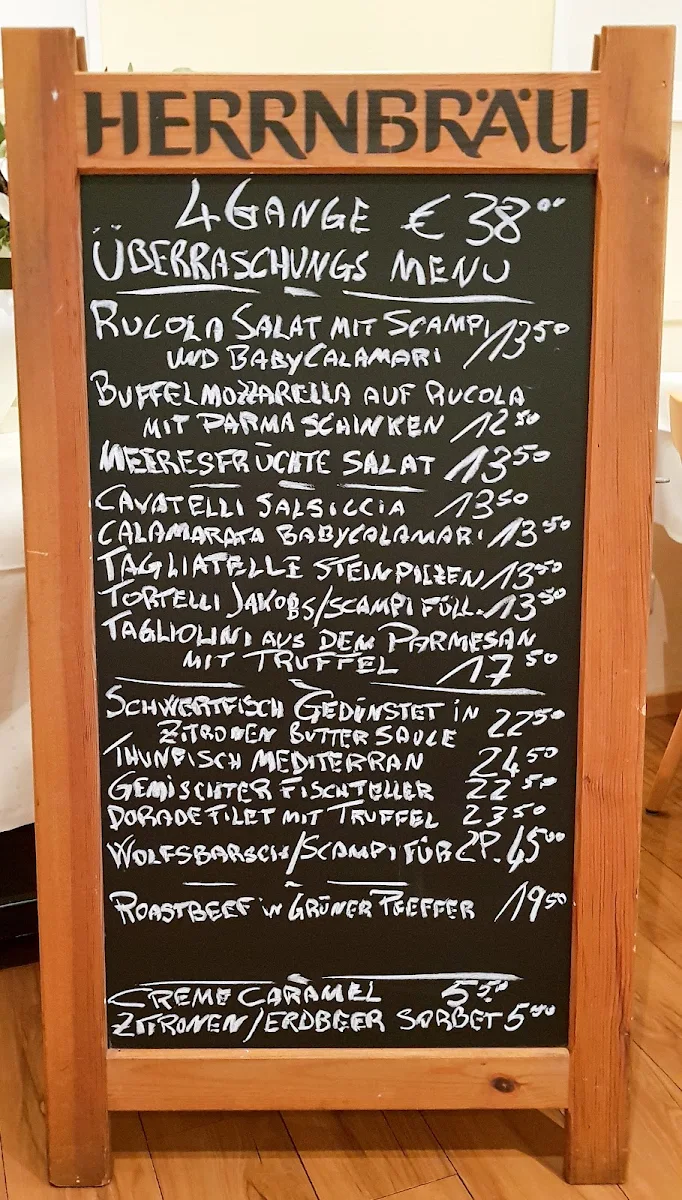 HERRNBRÄU
4 GANGE € 38⁰⁰
ÜBERRASCHUNGS MENU
RUCOLA SALAT MIT SCAMPI
UND BABYCALAMARI 13⁵⁰
BUFFELMOZZARELLA AUF RUCOLA
MIT PARMA SCHINKEN 12⁵⁰
MEERESFRÜCHTE SALAT 13⁵⁰
CAVATELLI SALSICCIA 13⁵⁰
CALAMARATA BABYCALAMARI 13⁵⁰
TAGLIATELLE STEINPILZEN 13⁵⁰
TORTELLI JAKOBS/SCAMPI FÜLL. 13⁵⁰
TAGLIOLINI AUS DEM PARMESAN
MIT TRUFFEL 17⁵⁰
SCHWERTFISCH GEDÜNSTET IN
ZITRONEN BUTTER SAUCE 22⁵⁰
THUNFISCH MEDITERRAN 24⁵⁰
GEMISCHTER FISCHTELLER 22⁵⁰
DORADE FILET MIT TRUFFEL 23⁵⁰
WOLFSBARSCH/SCAMPI FÜR 2P. 45⁰⁰
ROASTBEEF IN GRÜNER PFEFFER 19⁵⁰
CREME CARAMEL 5⁵⁰
ZITRONEN/ERDBEER SORBET 5⁰⁰